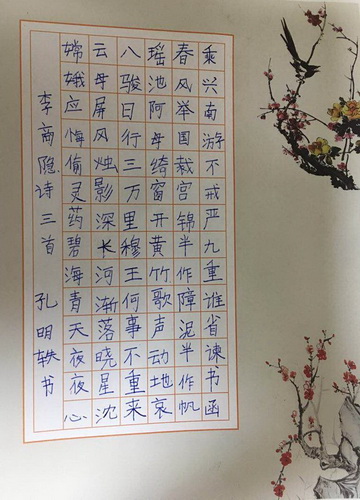 乘兴南游不戒严九重谁省谏书函
春风举国裁宫锦半作障泥半作帆
瑶池阿母绮窗开黄竹歌声动地哀
八骏日行三万里穆王何事不重来
云母屏风烛影深长河渐落晓星沈
嫦娥应悔偷灵药碧海青天夜夜心
李商隐诗三首 孔明轶书